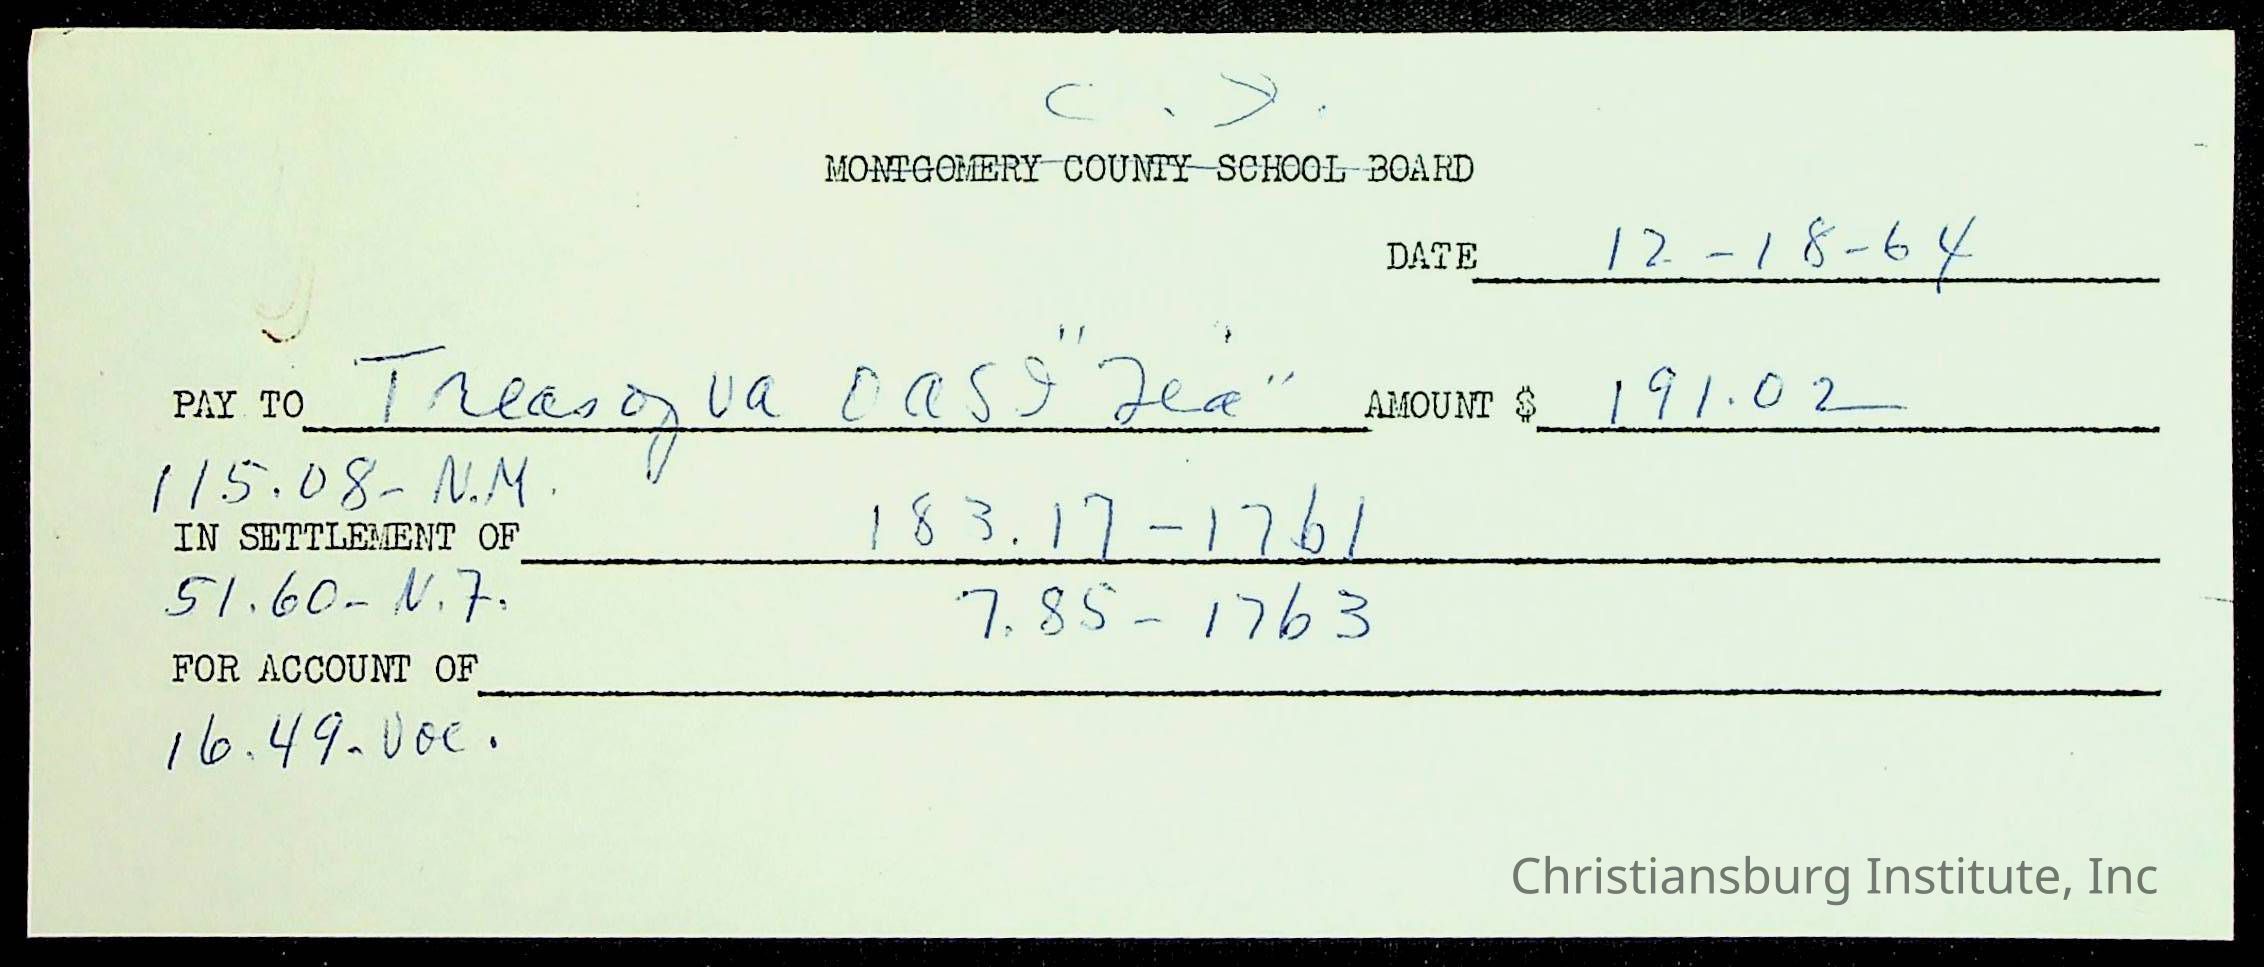 C. I.
MONTGOMERY COUNTY SCHOOL BOARD
DATE 12-18-64
PAY TO Treas of Va OASI AMOUNT $ 191.02
115.08- N.M.
IN SETTLEMENT OF 183.17-1761
51.60- N.F. 7.85- 1763
FOR ACCOUNT OF
16.49- Voc.
Christiansburg Institute, Inc